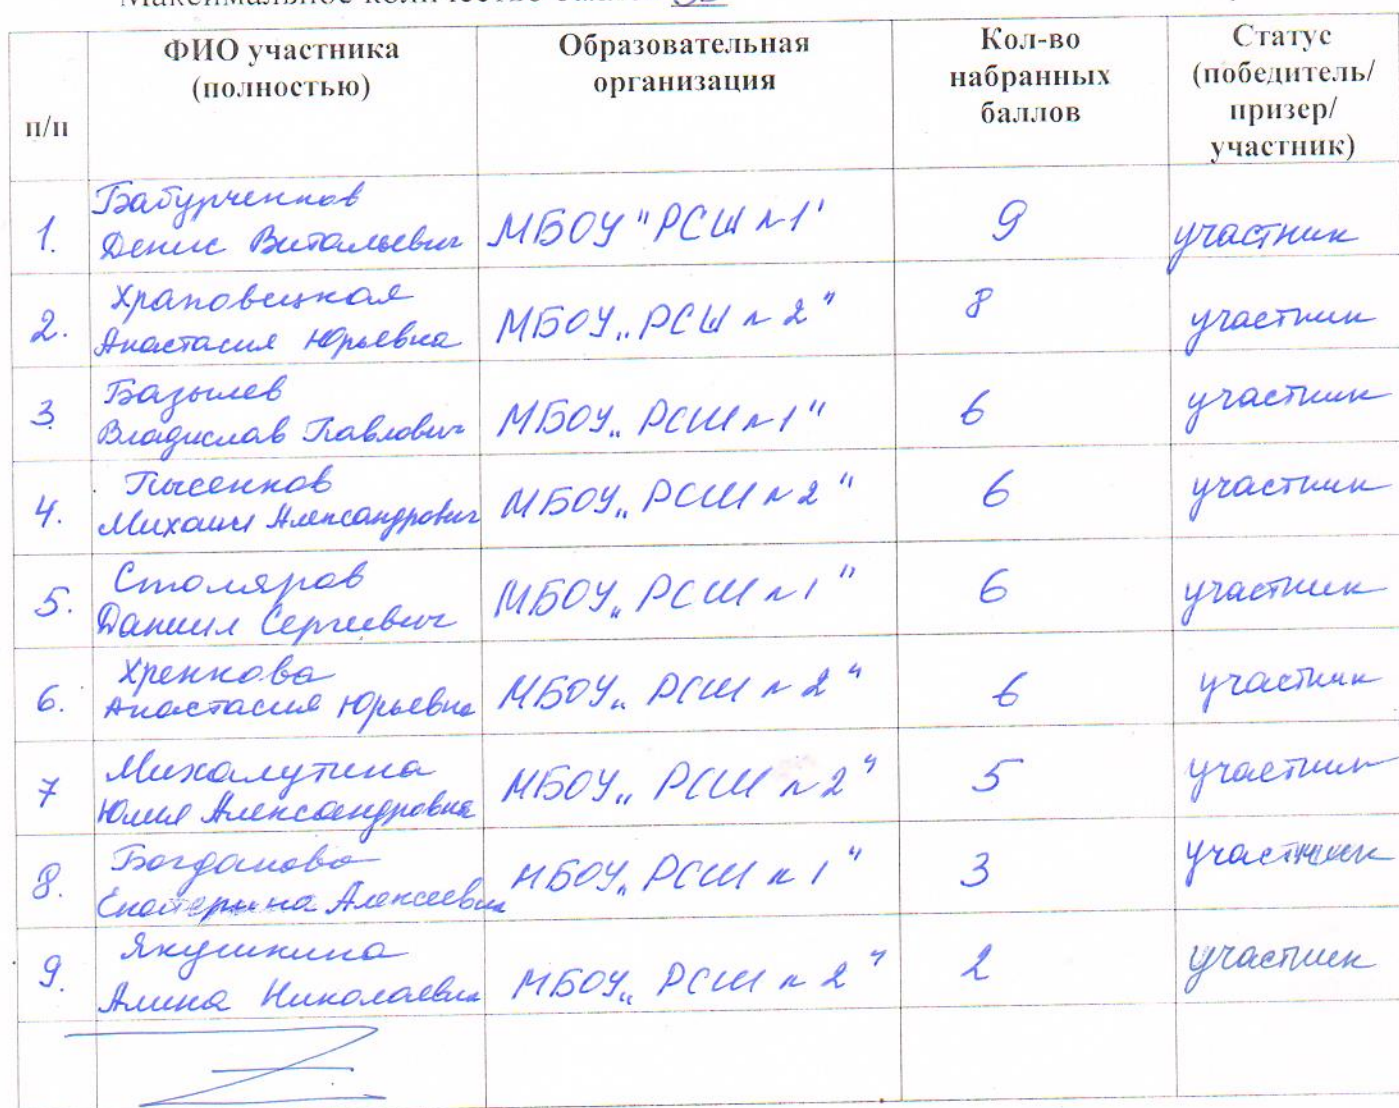 Максимальное количество
п/п
ФИО участника
(полностью)
Образовательная
организация
Кол-во
набранных
баллов
Статус
(победитель/
призер/
участник)
1.
Бабурченков
Денис Витальевич
МБОУ "РСШ №1"
9
участник
2.
Храповицкая
Анастасия Юрьевна
МБОУ „РСШ №2"
8
участник
3.
Базылев
Владислав Павлович
МБОУ „РСШ №1"
6
участник
4.
Михаил Александрович
МБОУ „РСШ №2"
6
участник
5.
Столяров
Даниил Сергеевич
МБОУ „РСШ №1"
6
участник
6.
Хренкова
Анастасия Юрьевна
МБОУ „РСШ №2"
6
участник
7
Михалутина
Юлия Александровна
МБОУ „РСШ №2"
5
участник
8.
Богданова
Екатерина Алексеевна
МБОУ „РСШ №1"
3
участник
9.
Якушкина
Алина Николаевна
МБОУ „РСШ №2"
2
участник